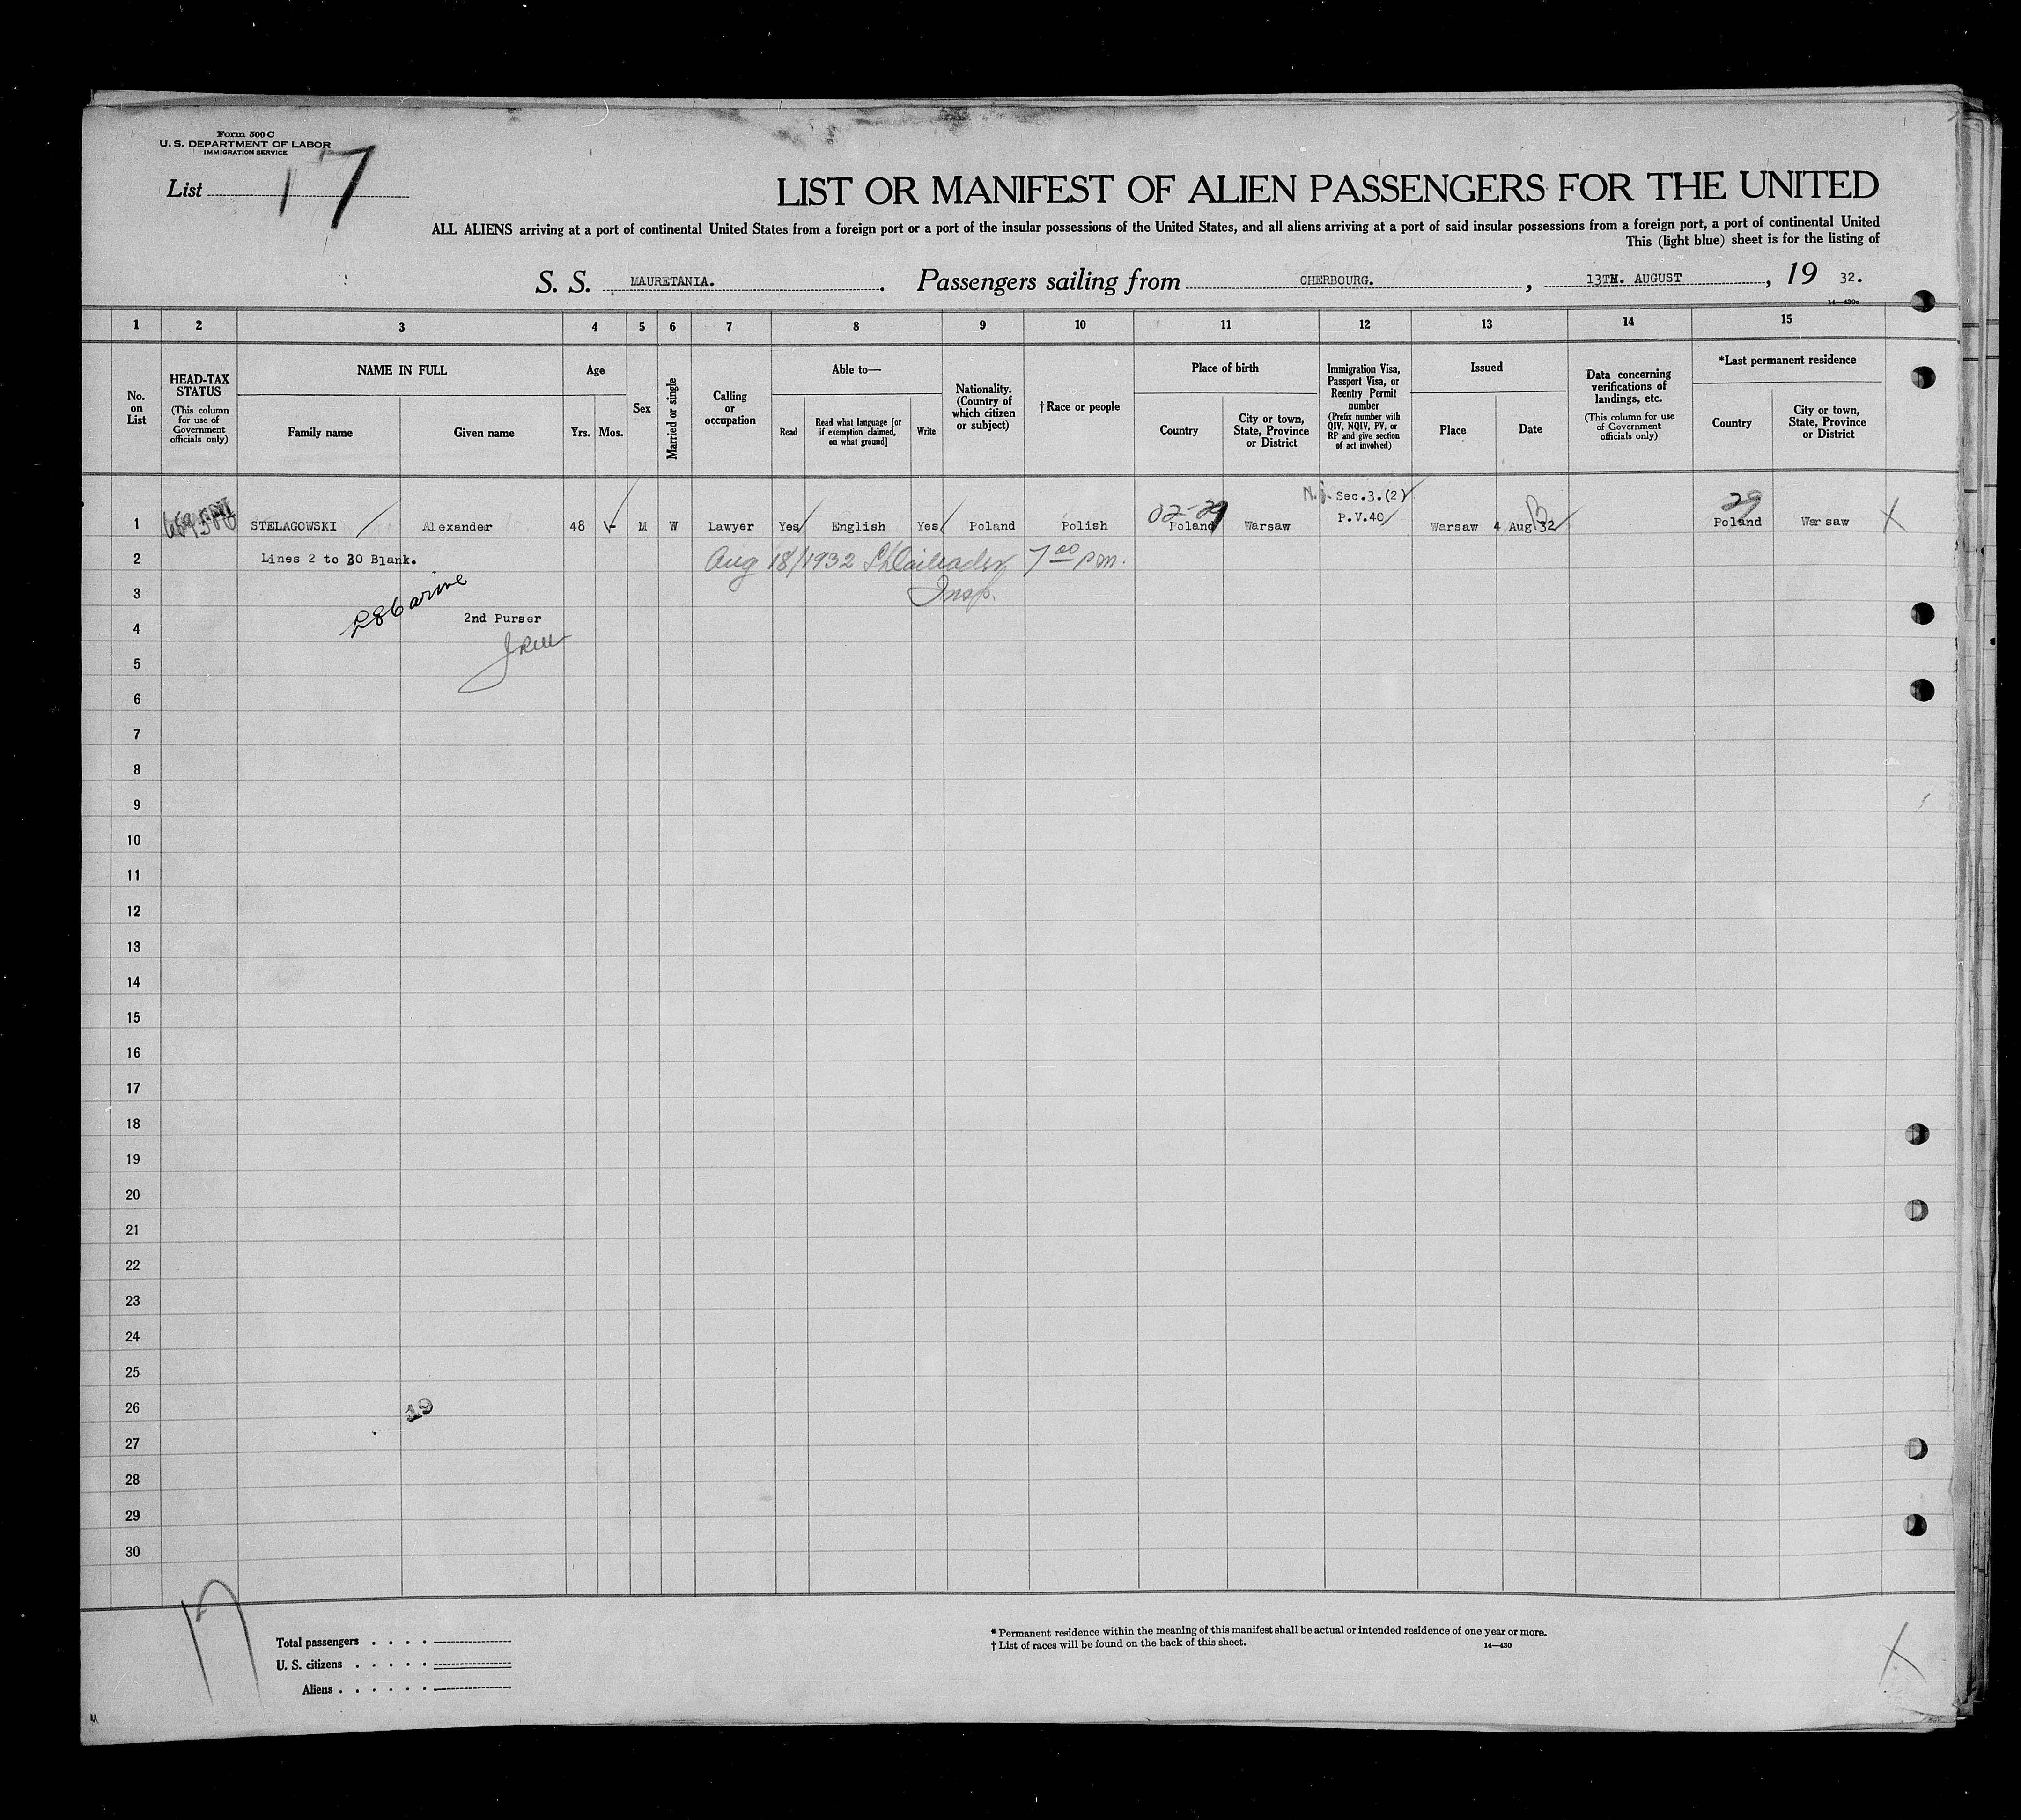 Form 500 C
U. S. DEPARTMENT OF LABOR
IMMIGRATION SERVICE
List 17
LIST OR MANIFEST OF ALIEN PASSENGERS FOR THE UNITED
ALL ALIENS arriving at a port of continental United States from a foreign port or a port of the insular possessions of the United States, and all aliens arriving at a port of said insular possessions from a foreign port, a port of continental United
This (light blue) sheet is for the listing of
S. S. MAURETANIA. Passengers sailing from CHERBOURG. , 13TH. AUGUST , 19 32.
14—430a
1 2 3 4 5 6 7 8 9 10 11 12 13 14 15
No. on List
HEAD-TAX STATUS
(This column for use of Government officials only)
NAME IN FULL
Family name Given name
Age
Yrs. Mos.
Sex
Married or single
Calling or occupation
Able to—
Read
Read what language [or if exemption claimed, on what ground]
Write
Nationality. (Country of which citizen or subject)
†Race or people
Place of birth
Country
City or town, State, Province or District
Immigration Visa, Passport Visa, or Reentry Permit number
(Prefix number with QIV, NQIV, PV, or RP and give section of act involved)
Issued
Place Date
Data concerning verifications of landings, etc.
(This column for use of Government officials only)
*Last permanent residence
Country
City or town, State, Province or District
02-29 Sec.3.(2) 29
1 STELAGOWSKI Alexander 48 M W Lawyer Yes English Yes Poland Polish Poland Warsaw P.V.40 Warsaw 4 Aug 32 Poland War saw X
2 Lines 2 to 30 Blank. Aug 18/1932 7 00 pm.
3 Insp.
2nd Purser
4
5
6
7
8
9
10
11
12
13
14
15
16
17
18
19
20
21
22
23
24
25
26 19
27
28
29
30
17
Total passengers . . . .
U. S. citizens . . . . .
Aliens . . . . . .
* Permanent residence within the meaning of this manifest shall be actual or intended residence of one year or more.
† List of races will be found on the back of this sheet. 14—430
X